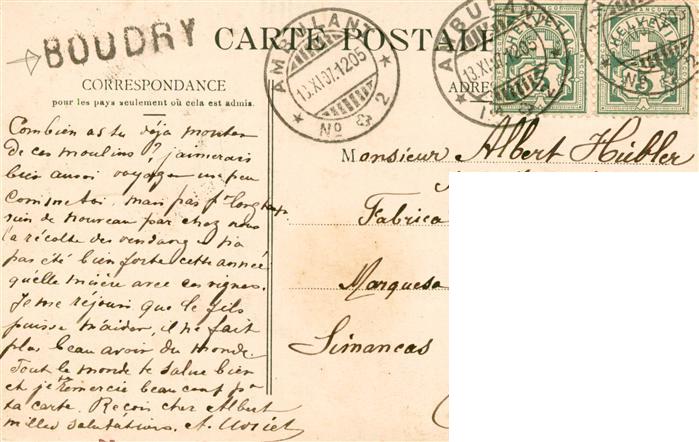 BOUDRY
CARTE POSTALE
AMBULANT
13.XI.07.12
No 8 2
AMBULANT
13.XI.07.12
HELVETIA
5
HELVETIA
5
CORRESPONDANCE
pour les pays seulement où cela est admis.
ADRES
Combien as tu déja monter
de ces moulins? j'aimerais
bien aussi voyager un peu
comme toi, mais pas pr longtemps
suis de nouveau par chez nous
la récolte des vendang n'a
pas été bien forte cette année
quélle misère avec ces vignes.
Je me réjouis que le fils
puisse m'aider, il ne fait
plus beau avoir du monde.
Tout le monde te salue bien
et je te remercie beaucoup pr
ta carte. Reçois cher Albert
milles salutations. A.
Monsieur Albert Hubler
Fabrica
Marquesa
Simancas